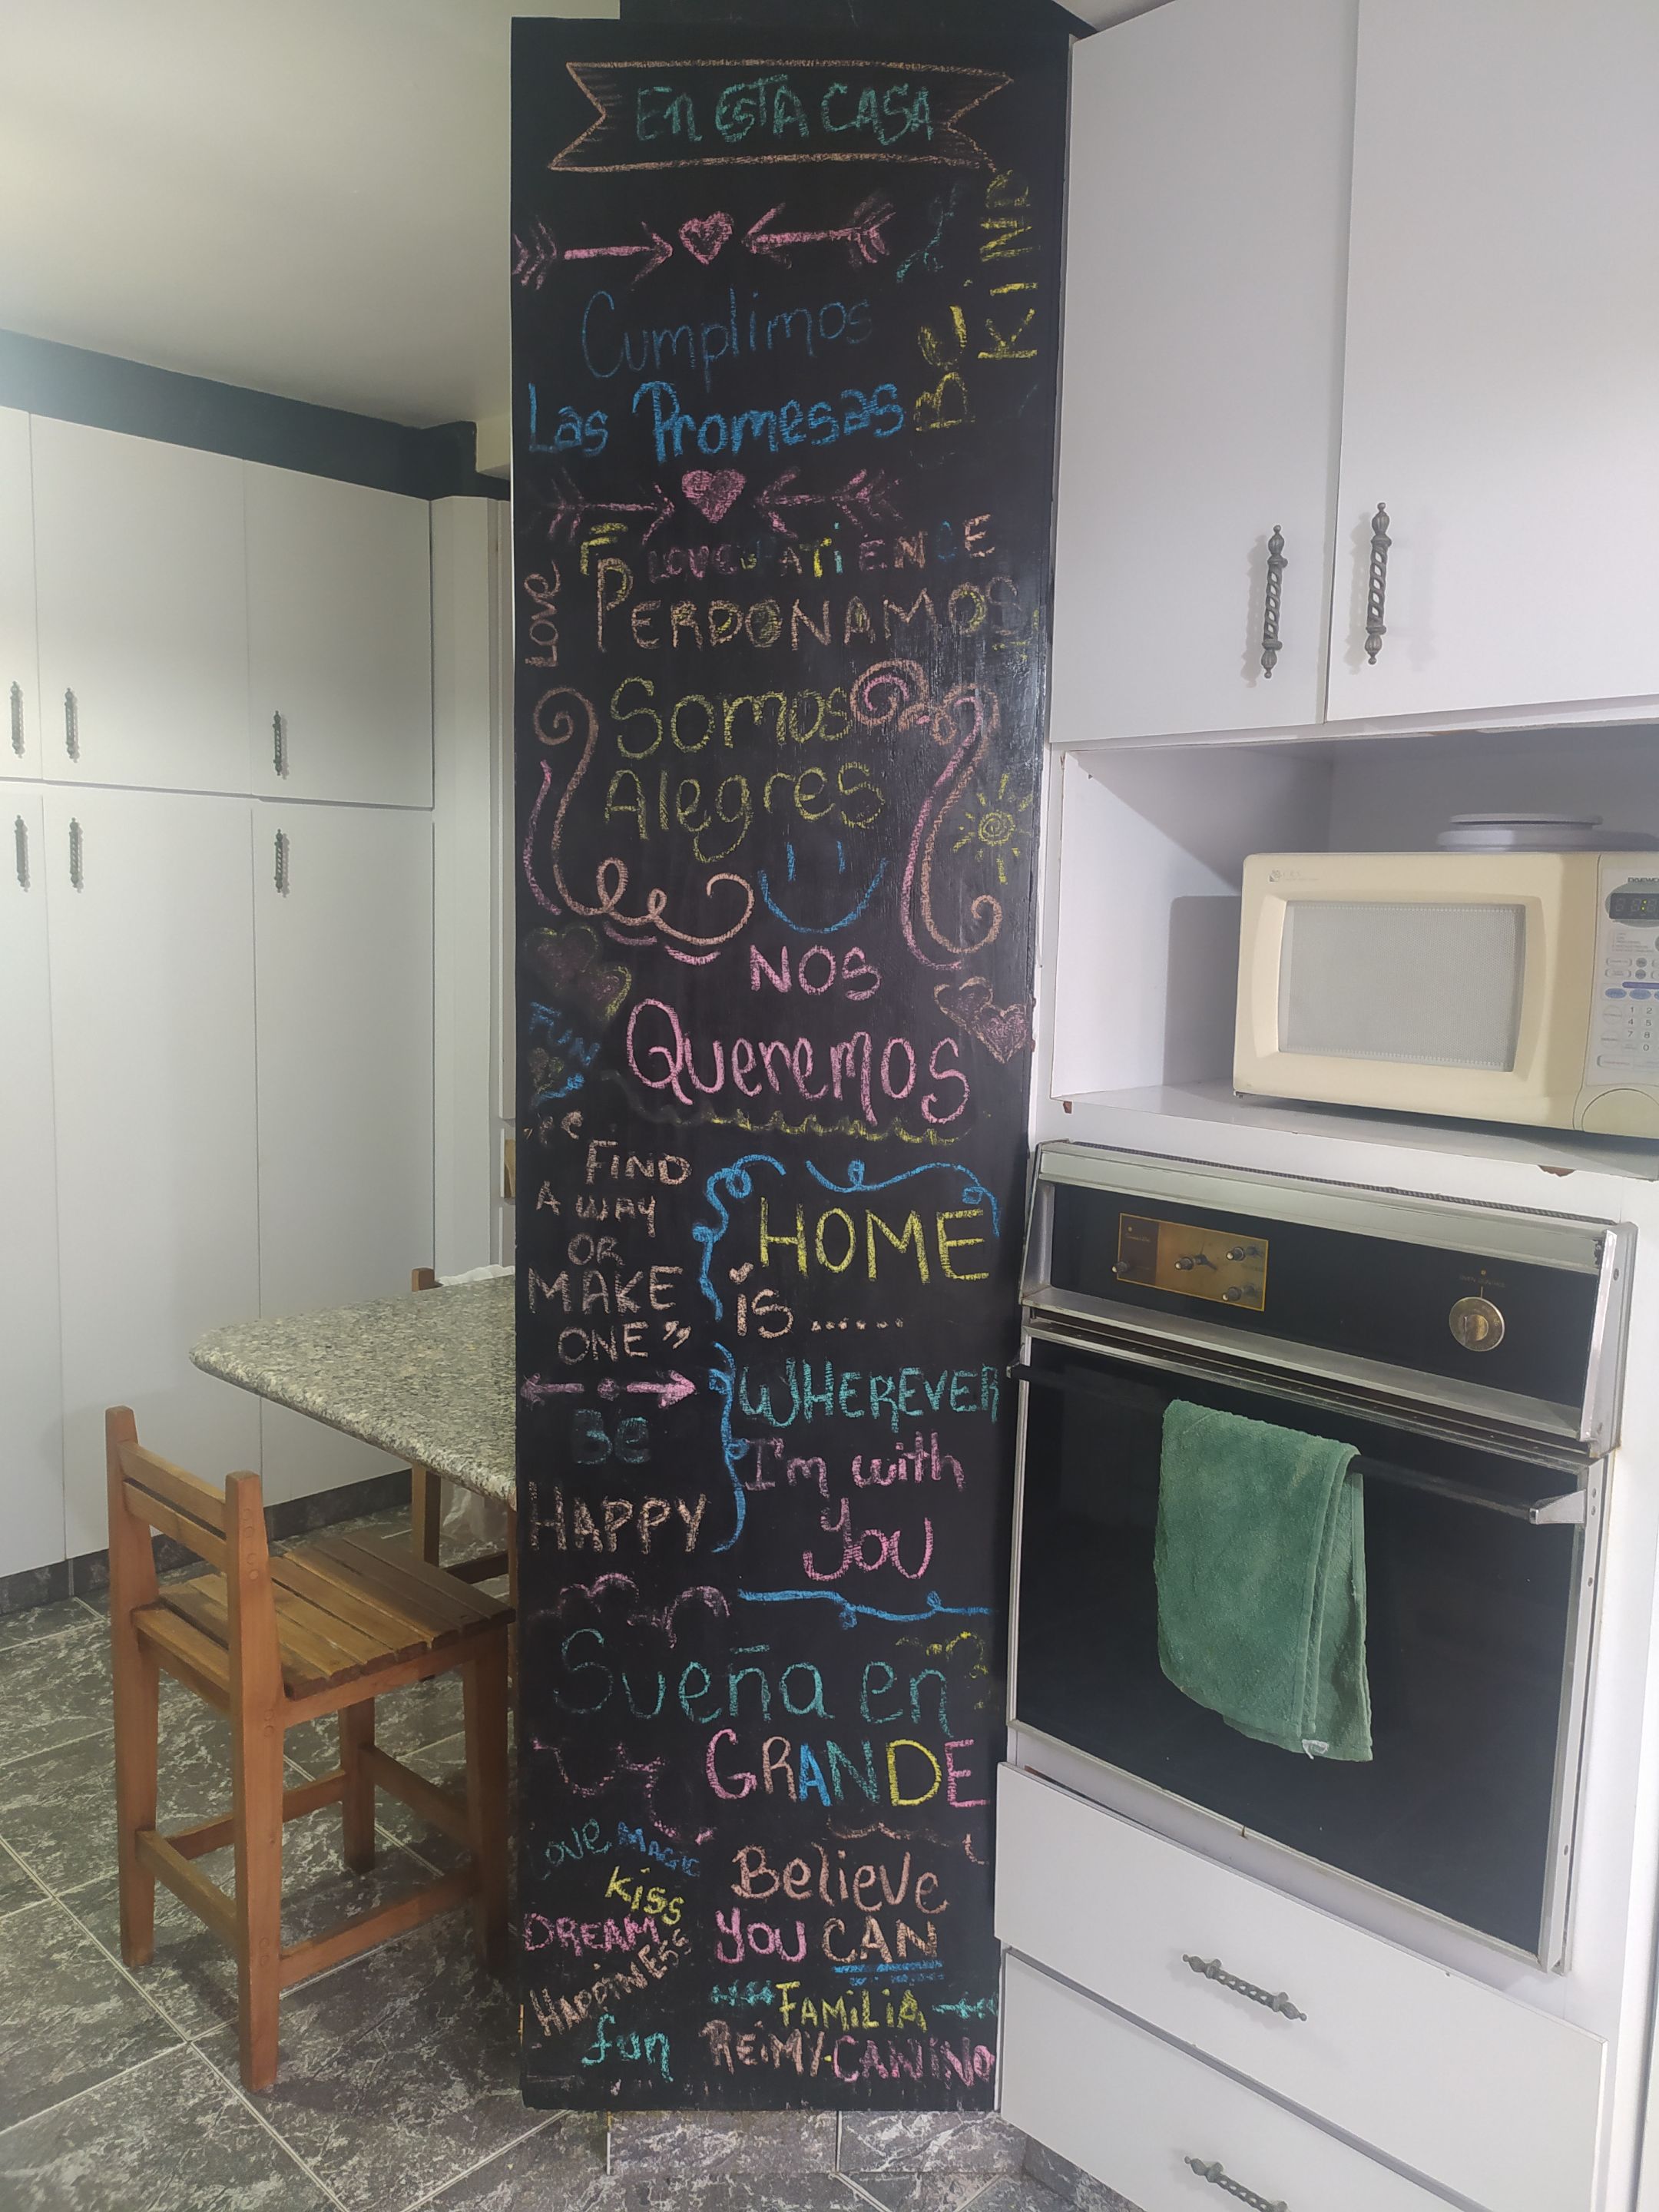 EN ESTA CASA
BE KIND
Cumplimos
Las Promesas
LOVE
PERDONAMOS
LOVE
Somos
Alegres
NOS
FUN
Queremos
"FIND
A WAY
OR
MAKE
ONE"
HOME
is ......
WHEREVER
I'm with
You
Be
HAPPY
Sueña en
GRANDE
LOVE MAGIC
Kiss
DREAM
HAPPINESS
fun
Believe
You CAN
FAMILIA
REIMY·CANINO